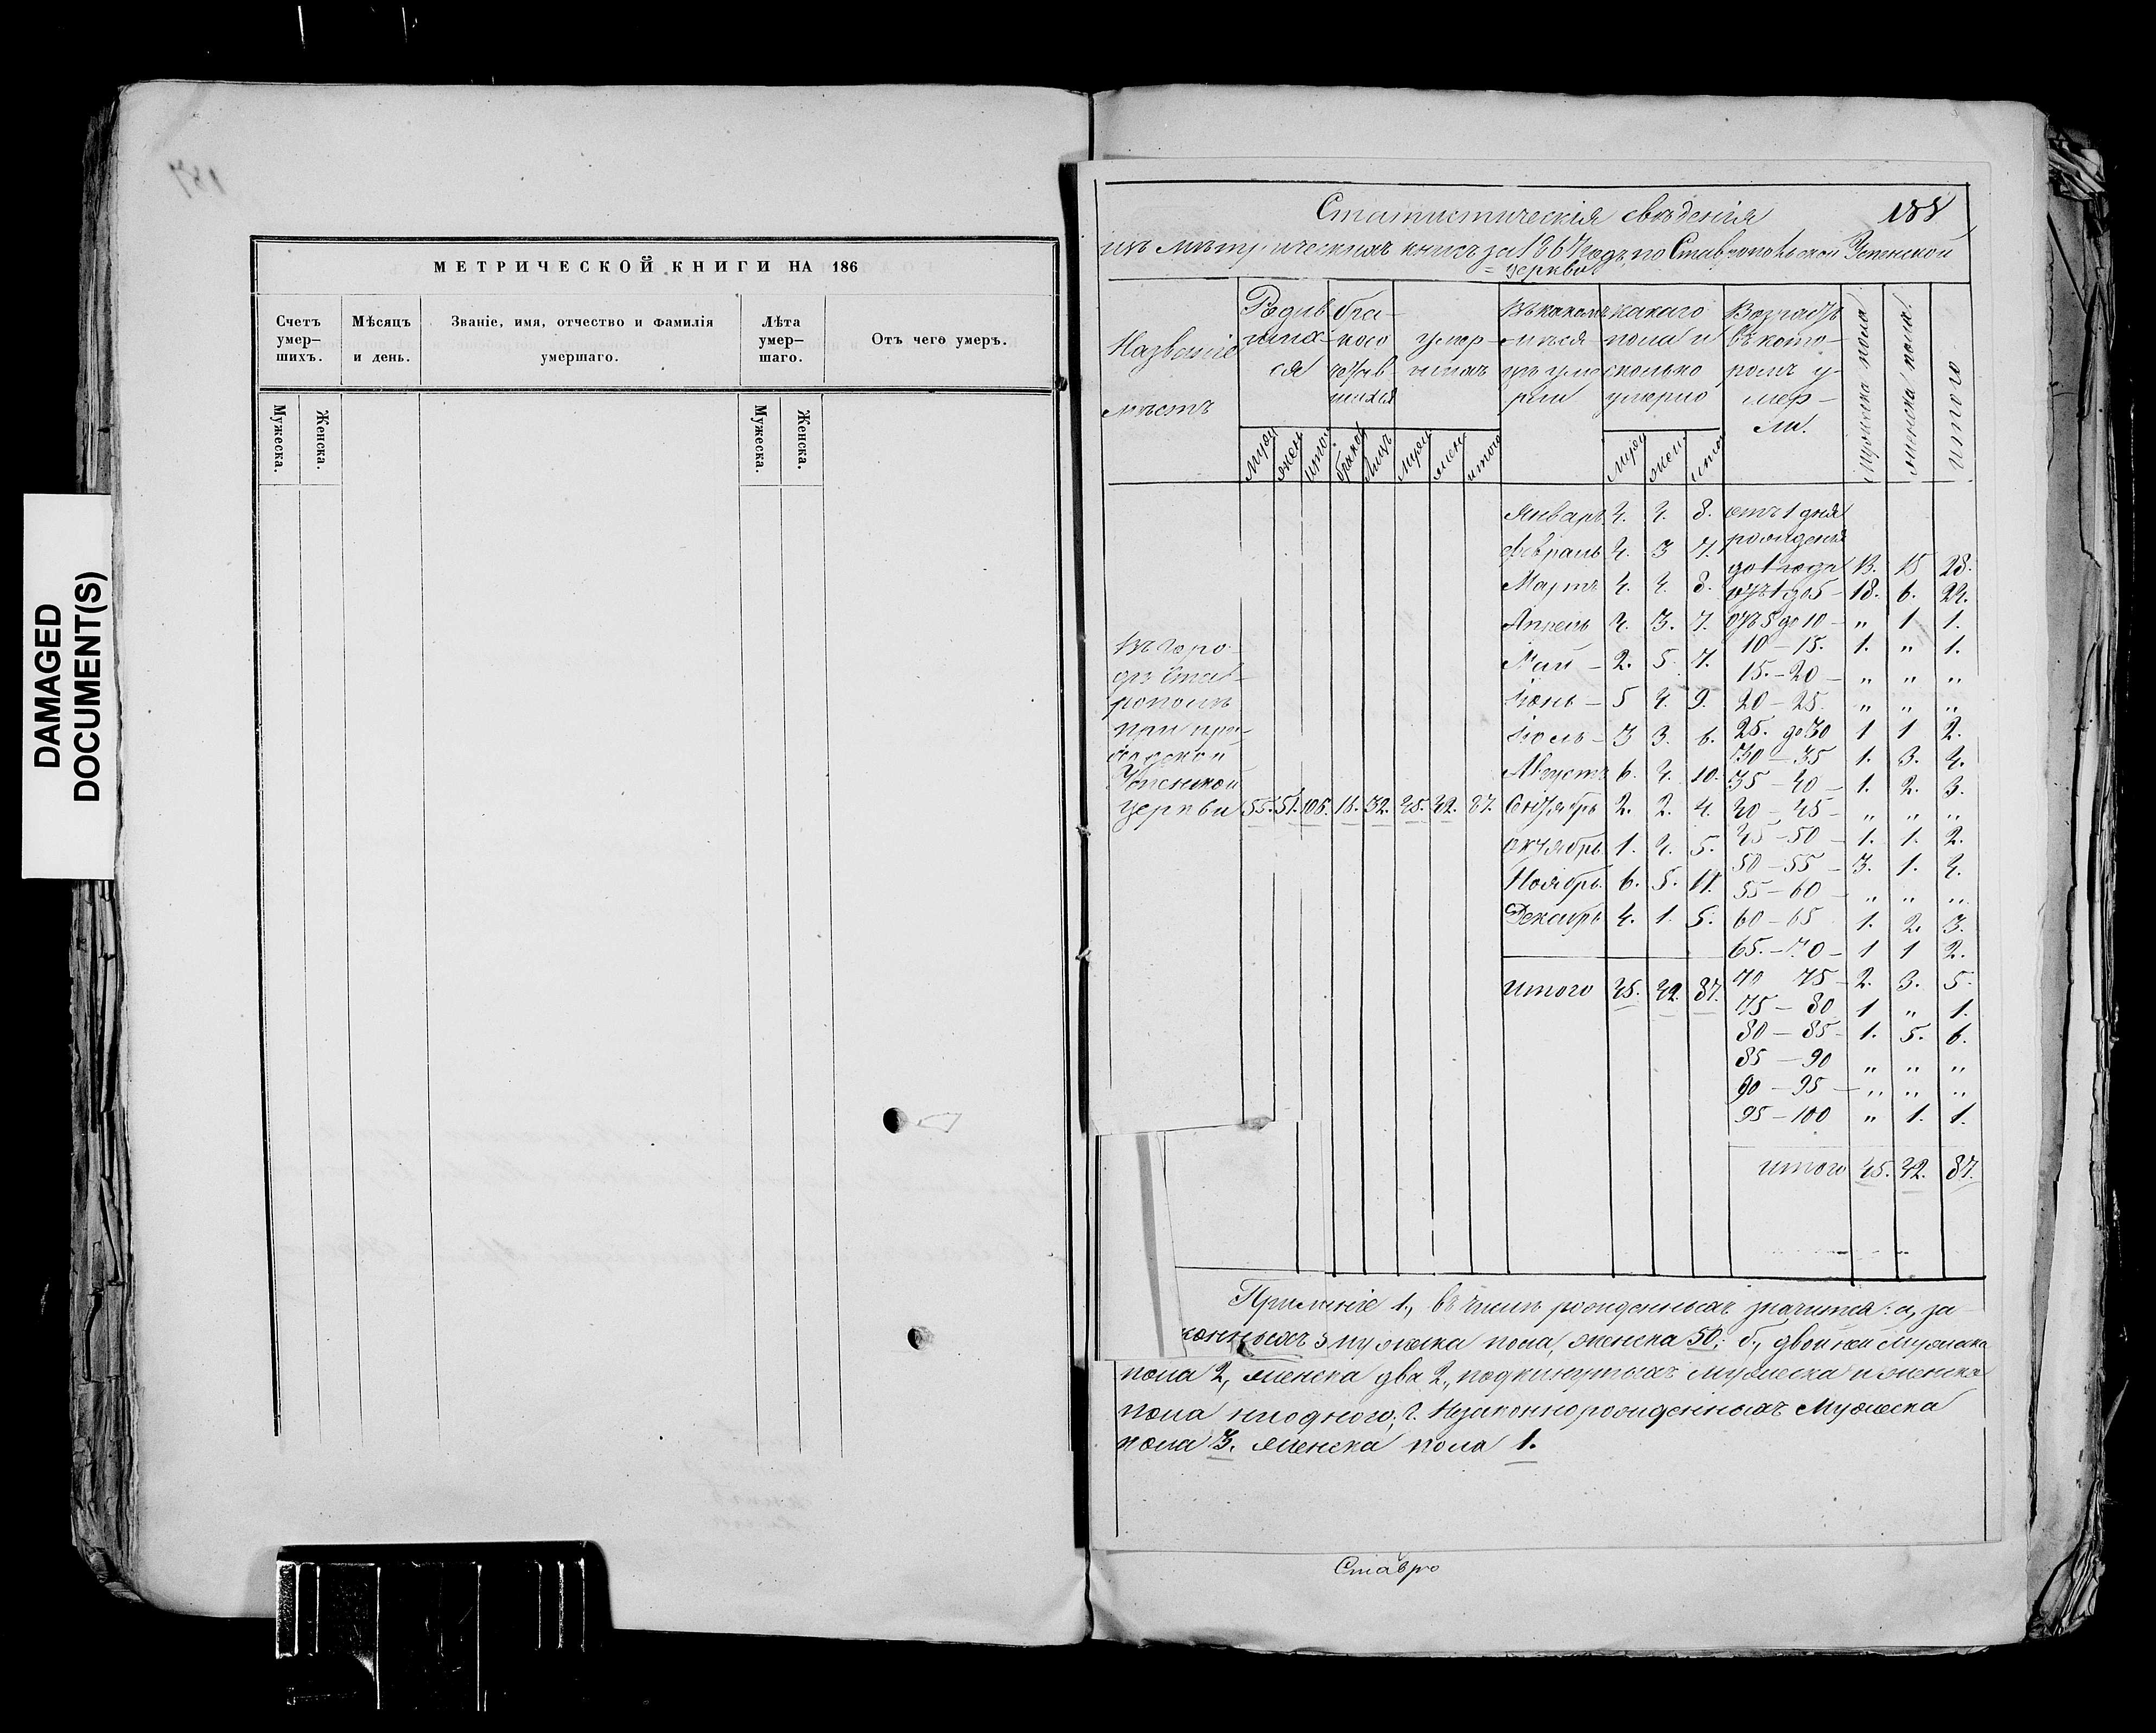 DAMAGED
DOCUMENT(S)
187
МЕТРИЧЕСКОЙ КНИГИ НА 186
Счетъ умер— шихъ.
Мѣсяцъ и день.
Званіе, имя, отчество и фамилія умершаго.
Лѣта умер— шаго.
Отъ чего умеръ.
Мужеска. Женска. Мужеска. Женска.
Статистическія свѣденія 188
изъ метрическихъ книгъ за 1867 годъ, по Ставропольской Успенской
церкви
Названіе мѣстъ
Родив шихся
бракосочетавшихся
умершихъ
Въ какомъ мѣсяцѣ умерли
какого пола и сколько умерло
Возрастъ въ которомъ умерли.
Мужеска пола
женска пола
итого
муж жен итого браков лицъ муж жен итого муж жен итого
Въ горо-
дѣ Став-
рополѣ
при
Успенской
церкви 55. 51. 106. 16. 32. 45. 42. 87.
Январь 4. 4. 8.
Февраль 4. 3 7.
Мартъ 4. 4. 8.
Апрель 4. 3. 7.
Май – 2. 5. 7.
Іюнь – 5 4. 9.
Іюль – 3 3. 6.
Августъ 6. 4. 10.
Сентябрь 2. 2. 4.
Октябрь 1. 4. 5.
Ноябрь 6. 5. 11.
Декабрь 4. 1. 5.
итого 45. 42. 87.
отъ 1 дня
рожденія
до 1 года 13. 15 28.
отъ 1 до 5 – 18. 6. 24.
отъ 5 до 10 – „ 1 1.
10 – 15. 1. „ 1.
15. – 20 – „ „ „
20 – 25. „ „ „
25. до 30 1 1 2.
30 – 35 1. 3. 4.
35 – 40 – 1. 2. 3.
40 – 45 – „ „ „
45 – 50 – 1. 1. 2.
50 – 55 – 3. 1. 4.
55 – 60 – „ „ „
60 – 65 1. 2. 3.
65. – 70 – 1 1 2.
70 75 – 2. 3. 5.
75 – 80 1 „ 1.
80 – 85 – 1. 5. 6.
85 – 90 „ „ „
90 – 95 – „ „ „
95 – 100 „ 1. 1.
итого 45. 42. 87.
1., въ числѣ рожденныхъ значится: а, за
конныхъ мужеска пола, женска 50; б., двойней мужеска
пола 2, женска два 2., подкинутыхъ мужеска и женска
пола ни одного; г. Незаконнорожденныхъ Мужеска
пола 3. женска пола 1.
Ставро